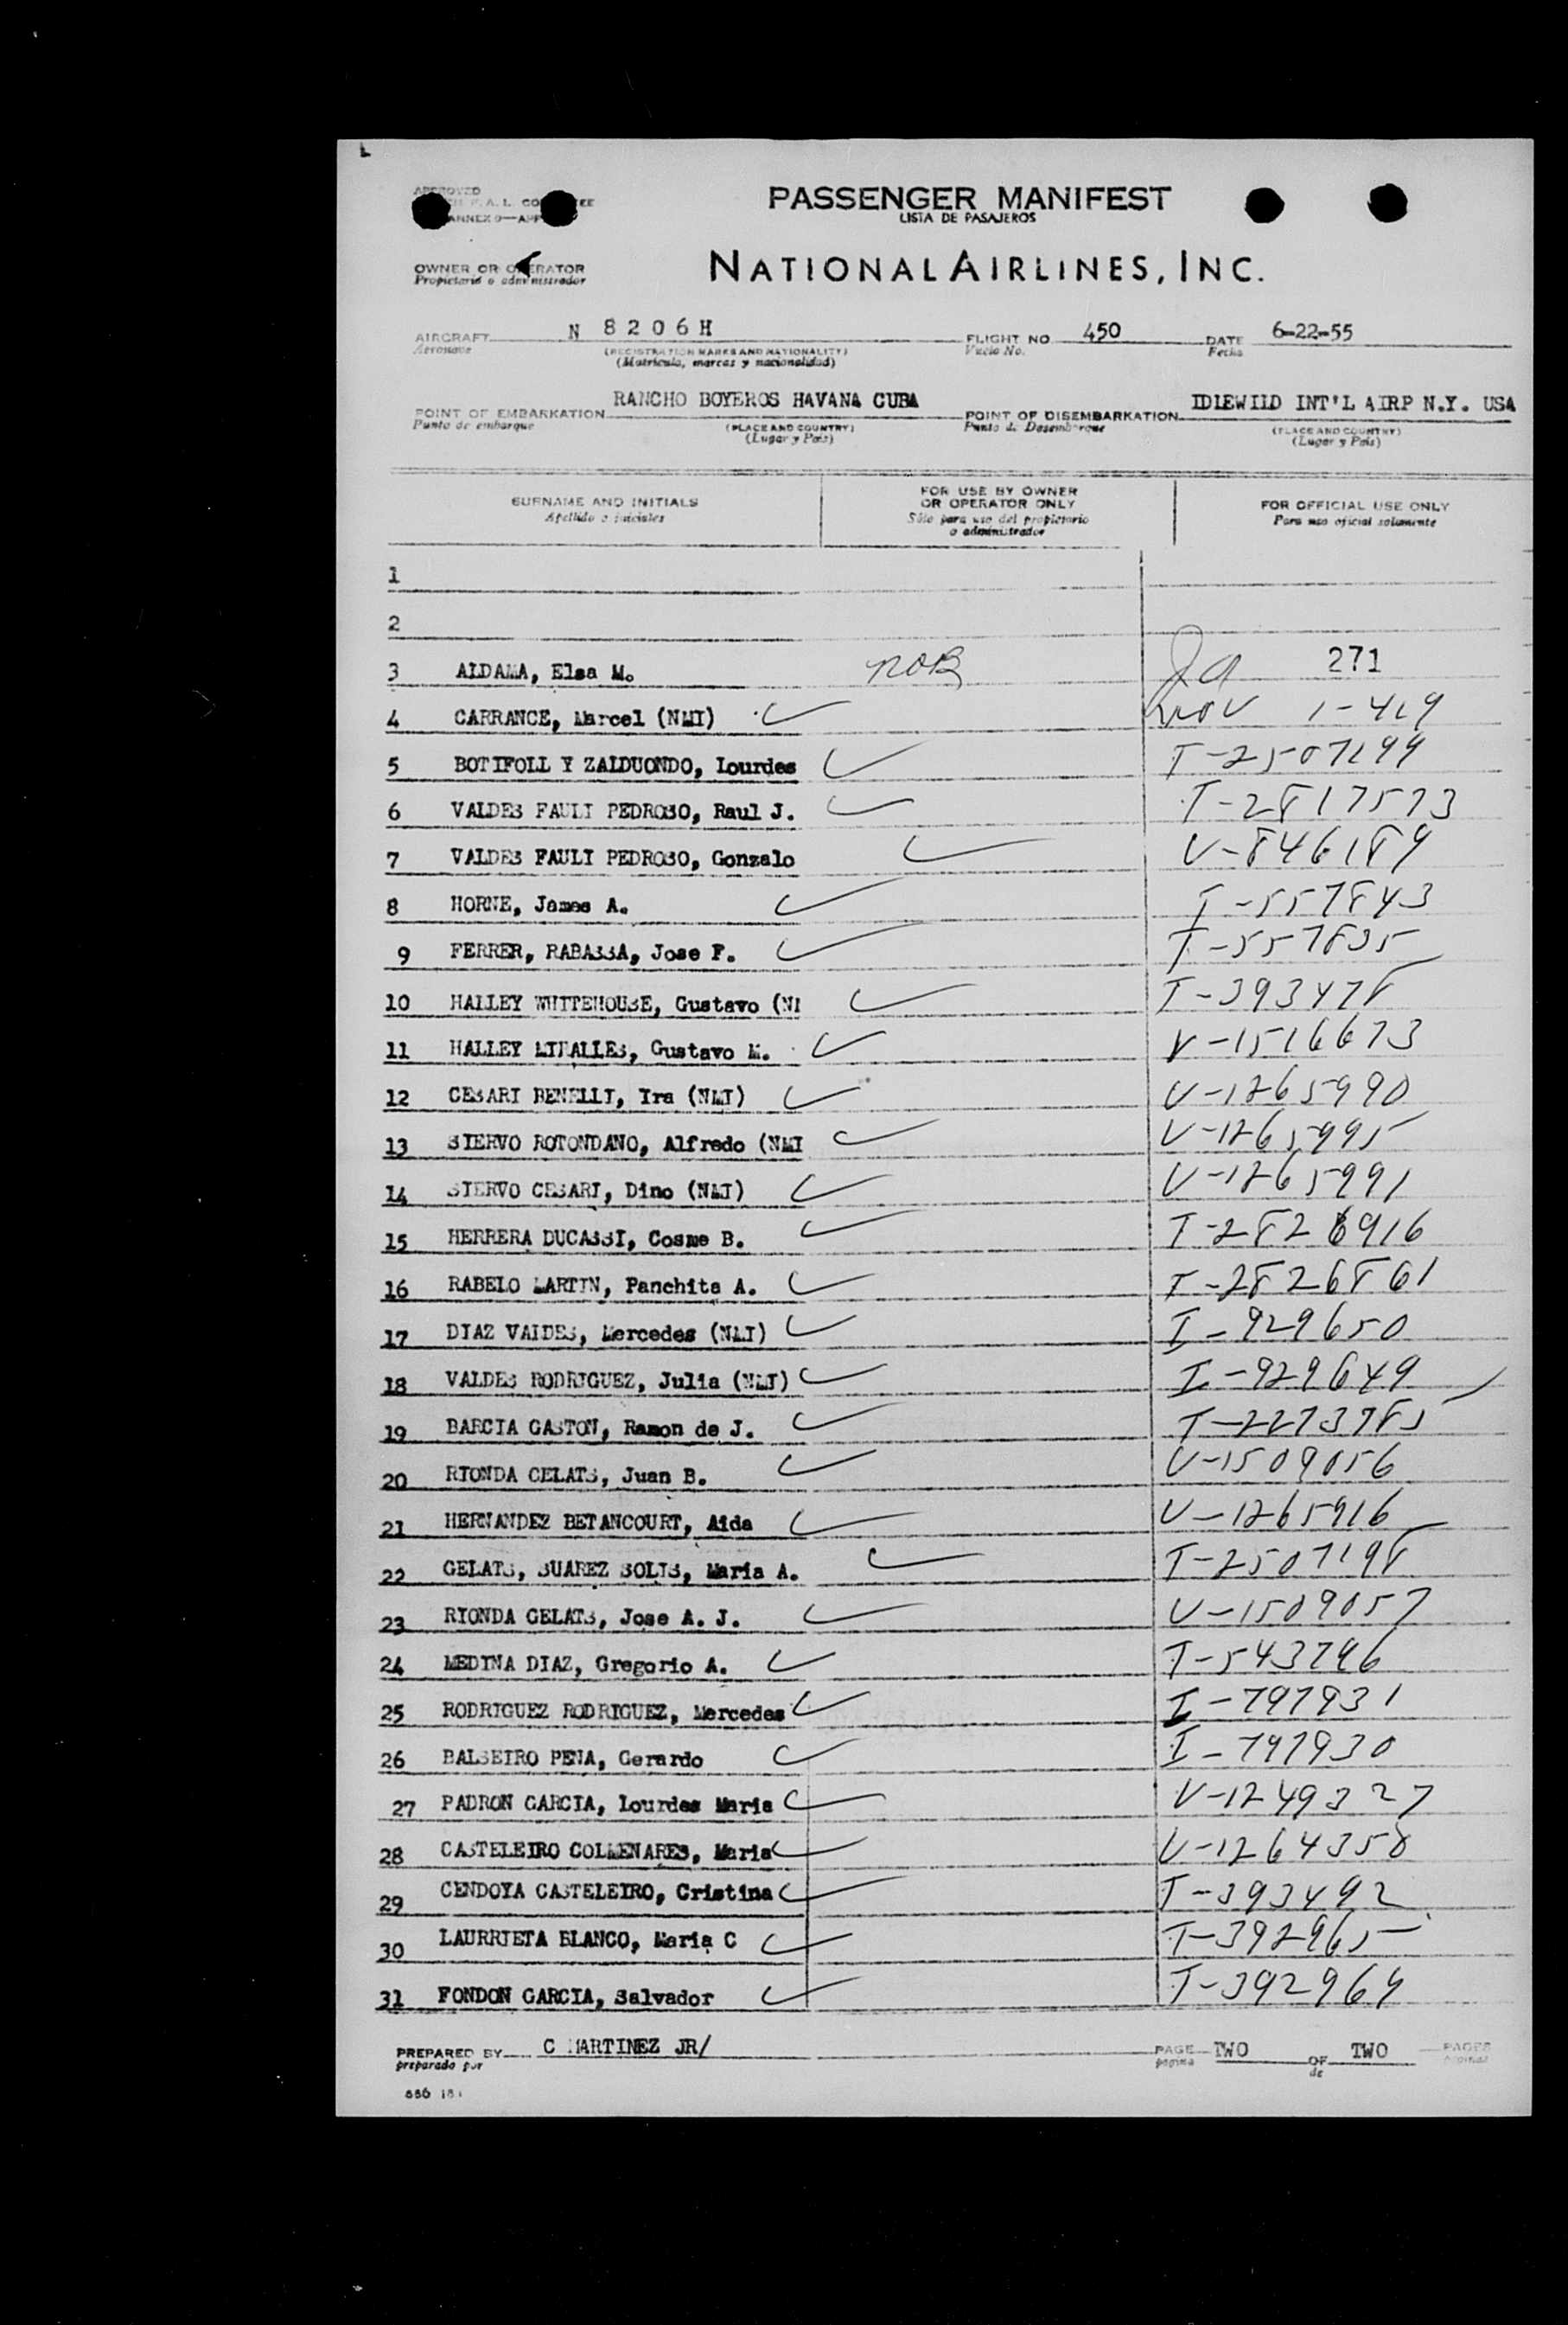 APPROVED
F. A. L. CO EE
ANNEX 9—APP
PASSENGER MANIFEST
LISTA DE PASAJEROS
OWNER OR OPERATOR
Propietario o administrador
NATIONAL AIRLINES, INC.
AIRCRAFT N 8206H FLIGHT NO 450 DATE 6-22-55
Aeronave (REGISTRATION MARKS AND NATIONALITY) Vuelo No. Fecha
(Matrícula, marcas y nacionalidad)
POINT OF EMBARKATION RANCHO BOYEROS HAVANA CUBA POINT OF DISEMBARKATION IDLEWILD INT'L AIRP N.Y. USA
Punto de embarque (PLACE AND COUNTRY) Punto de Desembarque (PLACE AND COUNTRY)
(Lugar y País) (Lugar y País)
SURNAME AND INITIALS FOR USE BY OWNER OR OPERATOR ONLY FOR OFFICIAL USE ONLY
Apellido e iniciales Sólo para uso del propietario o administrador Para uso oficial solamente
1
2
3 ALDAMA, Elsa M. NOB 271
4 CARRANCE, Marcel (NMI) 1-419
5 BOTIFOLL Y ZALDUONDO, Lourdes T-2507199
6 VALDES FAULI PEDROSO, Raul J. T-2817573
7 VALDES FAULI PEDROSO, Gonzalo V-846189
8 HORNE, James A. I-557843
9 FERRER, RABASSA, Jose F. T-557835
10 HALLEY WHITEHOUSE, Gustavo (NM I-393478
11 HALLEY MIRALLES, Gustavo M. V-1516673
12 CESARI BENELLI, Ira (NMI) V-1265990
13 SIERVO ROTONDANO, Alfredo (NMI V-1265995
14 SIERVO CESARI, Dino (NMI) V-1265991
15 HERRERA DUCASSI, Cosme B. T-2826916
16 RABELO MARTIN, Panchita A. T-2826861
17 DIAZ VALDES, Mercedes (NMI) I-929650
18 VALDES RODRIGUEZ, Julia (NMI) I-929649
19 BARCIA GASTON, Ramon de J. T-2273785
20 RIONDA GELATS, Juan B. V-1509056
21 HERNANDEZ BETANCOURT, Aida V-1265916
22 GELATS, SUAREZ SOLIS, Maria A. T-2507198
23 RIONDA GELATS, Jose A. J. V-1509057
24 MEDINA DIAZ, Gregorio A. T-543796
25 RODRIGUEZ RODRIGUEZ, Mercedes I-797931
26 BALSEIRO PENA, Gerardo I-797930
27 PADRON GARCIA, Lourdes Maria V-1249327
28 CASTELEIRO COLMENARES, Maria V-1264358
29 CENDOYA CASTELEIRO, Cristina T-393492
30 LAURRIETA BLANCO, Maria C T-392965
31 FONDON GARCIA, Salvador T-392964
PREPARED BY C MARTINEZ JR/ PAGE TWO OF TWO PAGES
preparado por página de páginas